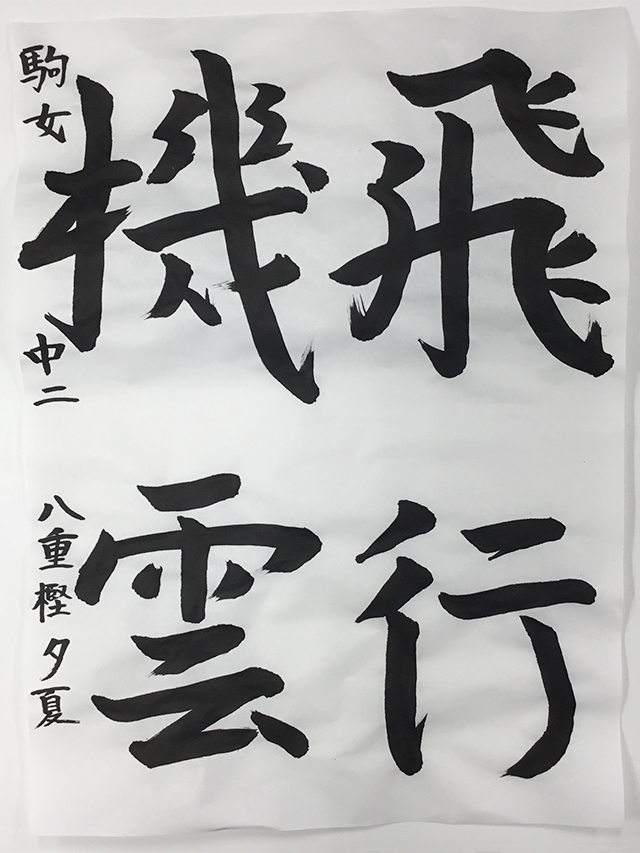 飛行
機雲
駒女 中二 八重樫夕夏